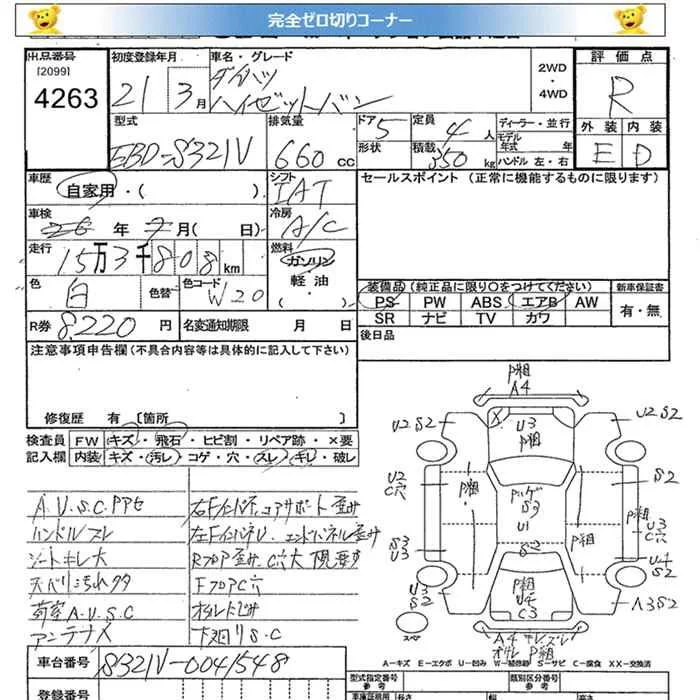 完全ゼロ切りコーナー
出品番号
[2099]
4263
初度登録年月
21 3月
車名・グレード
ダイハツ
ハイゼットバン
2WD
・
4WD
評価点
R
外装 内装
E D
型式
EBD-S321V
排気量
660 cc
ドア 5
形状
定員 4人
積載 350 kg
ディーラー・並行
モデル
年式 年
ハンドル 左・右
車歴
自家用・( )
シフト
IAT
セールスポイント (正常に機能するものに限ります)
車検
年 7月( 日)
冷房
A/C
走行
15万3千808km
燃料
ガソリン
軽油
・
( )
色
白
色替
色コード
W20
装備品(純正品に限り○をつけてください)
新車保証書
PS PW ABS エアB AW
有・無
SR ナビ TV カワ
R券 8220円
名変通知期限 月 日
後日品
注意事項申告欄(不具合内容等は具体的に記入して下さい)
修復歴 有 [箇所 ]
検査員
記入欄
FW キズ・飛石・ヒビ割・リペア跡・×要
内装 キズ・汚レ・コゲ・穴・スレ・キレ・破レ
A.U.S.C Pアセ
ハンドルスレ
シートキレ大
天バリ汚れクタ
荷室A.U.S.C
アンテナX
右Fインパネ、コアサポート歪み
左FインパネU、エンドパネル歪み
Rフロア歪み、C穴大
FフロアC穴
オイルにじみ
下廻りS.C
P粗
A4
U2 S2
X
U3
P粗
U2 S2
U2
C穴
P粗
ルーフ
S3
U1
S2
S2
P粗
U3
C穴
S3
U3
P粗
U4
S2
U3
S2
P粗
U4
C3
A3S2
スペア
A4 キレズレ
P粗
A-キズ E-エクボ U-凹み W-補修跡 S-サビ C-腐食 XX-交換済
車台番号
S321V-0041548
登録番号
型式指定番号
参考
類別区分番号
参考
車庫証明用
長さ
幅
高さ